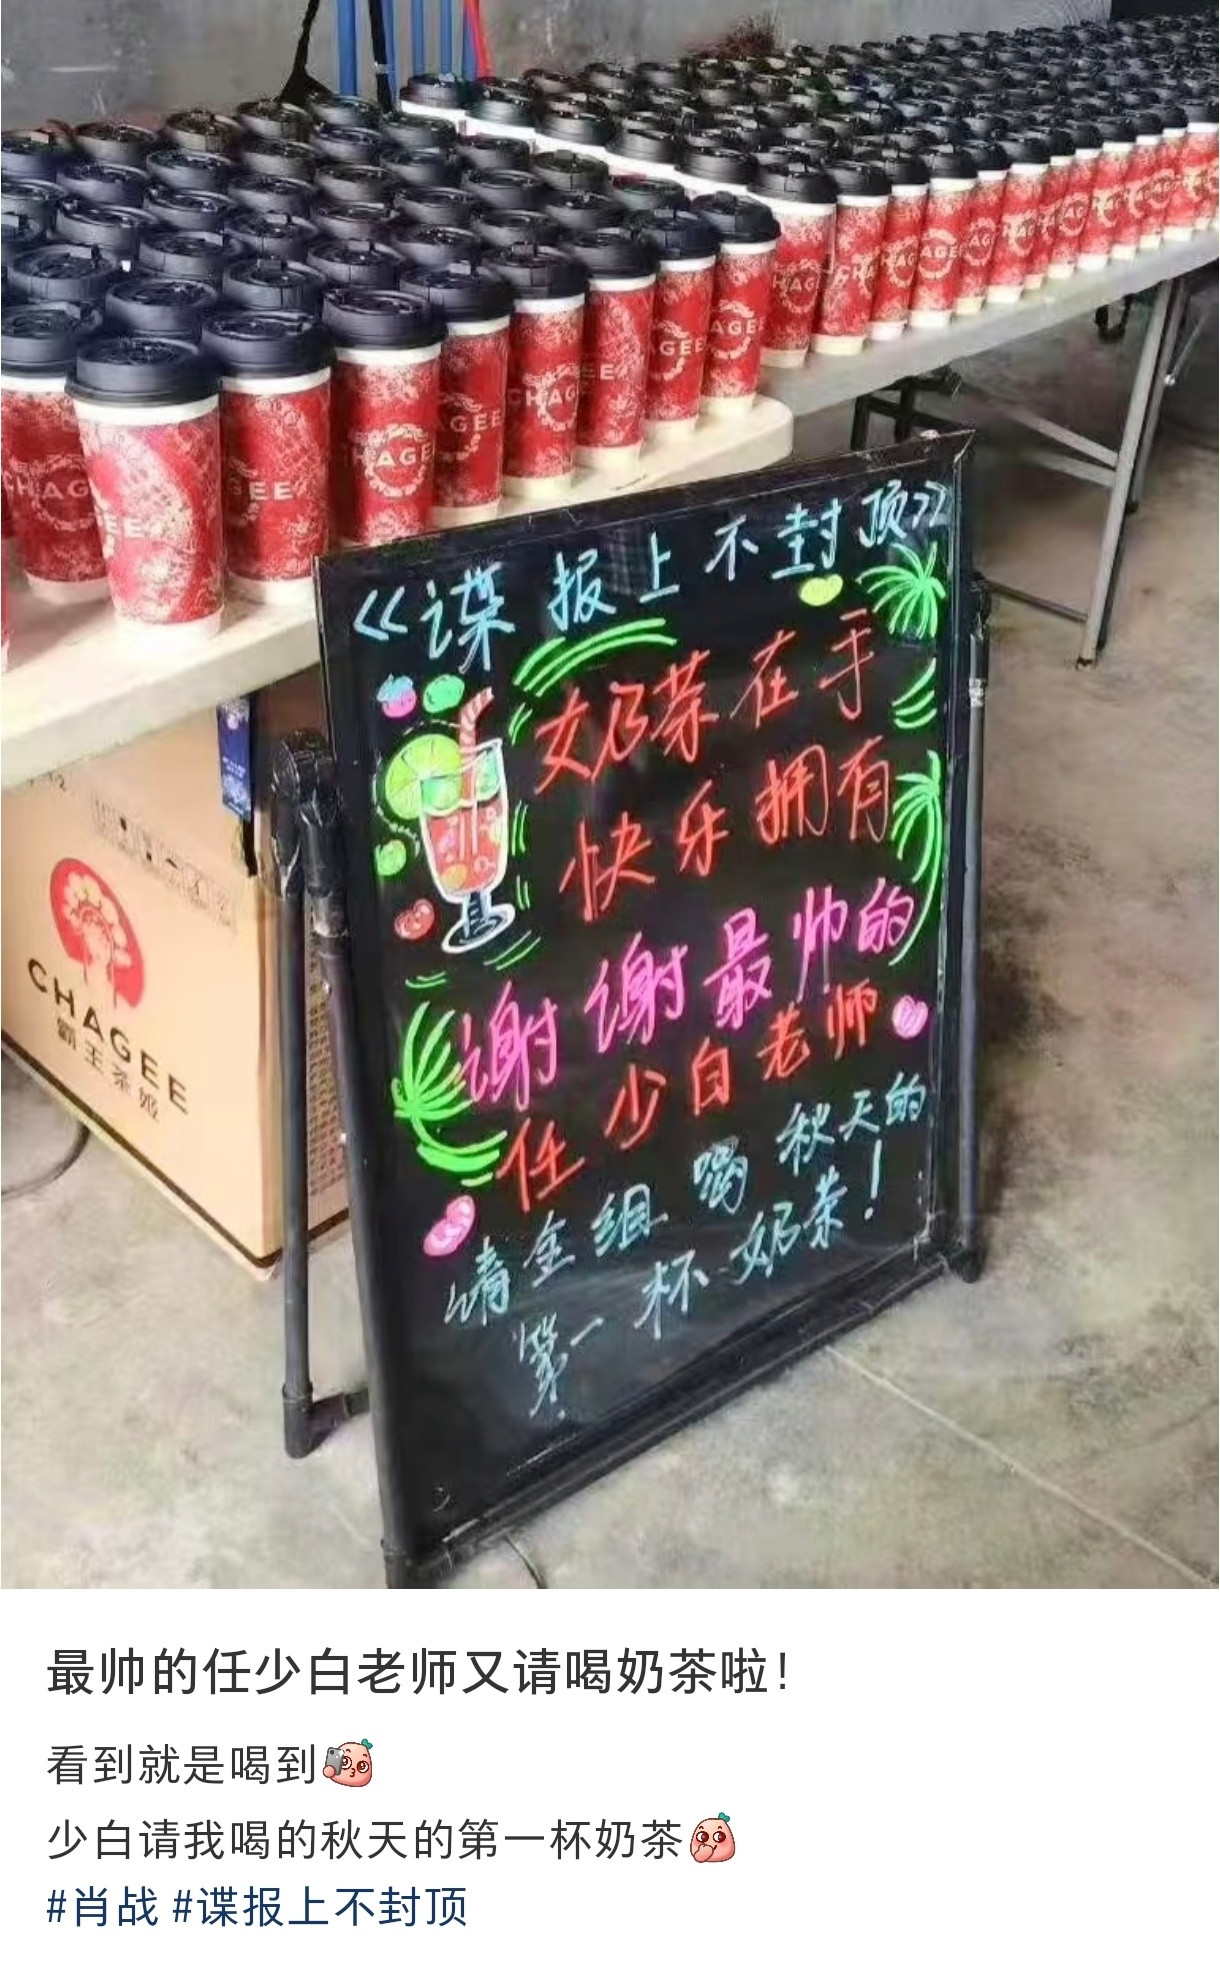 CHAGEE
CHAGEE
《谍报上不封顶》
奶茶在手
快乐拥有
谢谢最帅的
任少白老师
请全组喝秋天的
第一杯奶茶！
CHAGEE
霸王茶姬
最帅的任少白老师又请喝奶茶啦！
看到就是喝到
少白请我喝的秋天的第一杯奶茶
#肖战 #谍报上不封顶